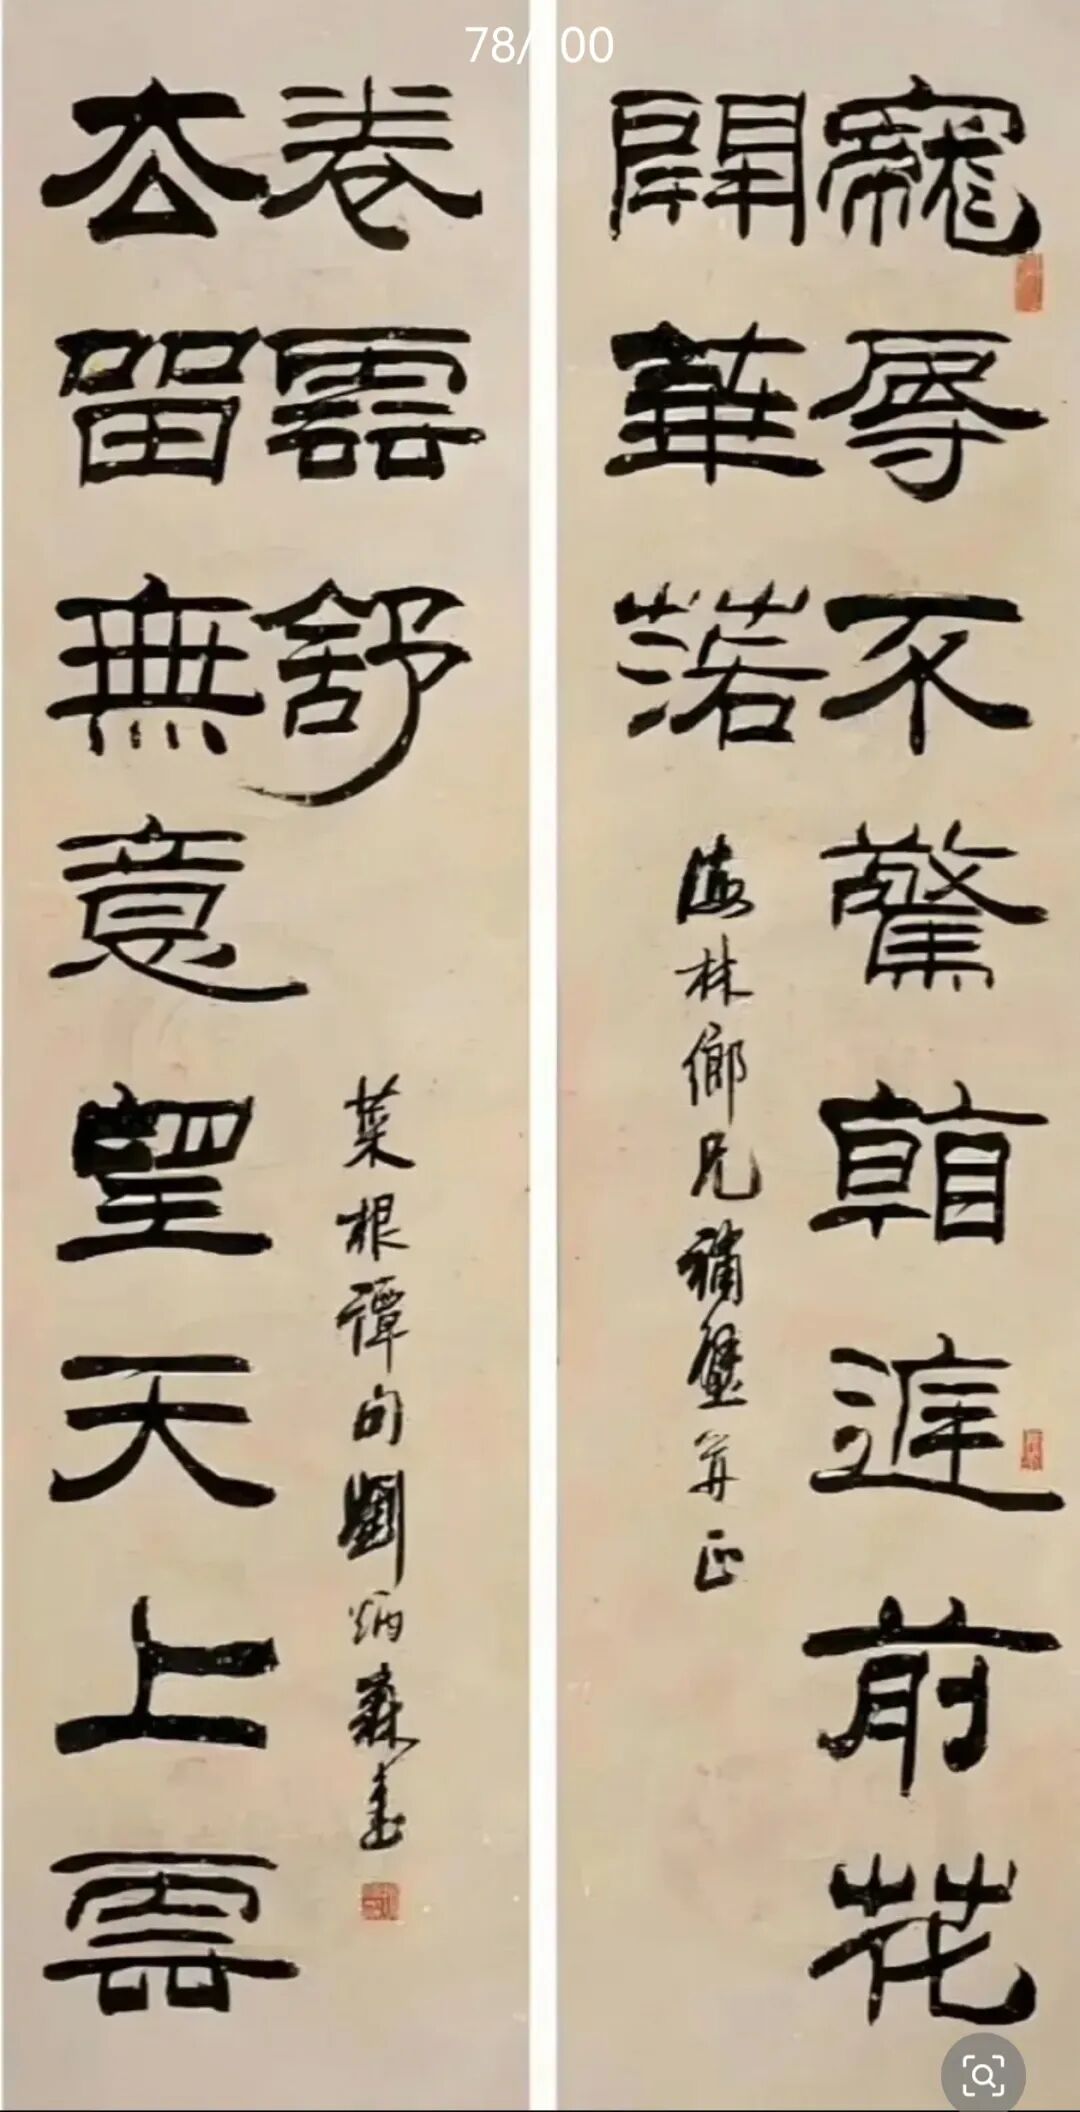 78/100
寵辱不驚看庭前花
開華落
海林鄉兄補壁并正
去留無意望天上雲
卷雲舒
菜根譚句劉炳森書